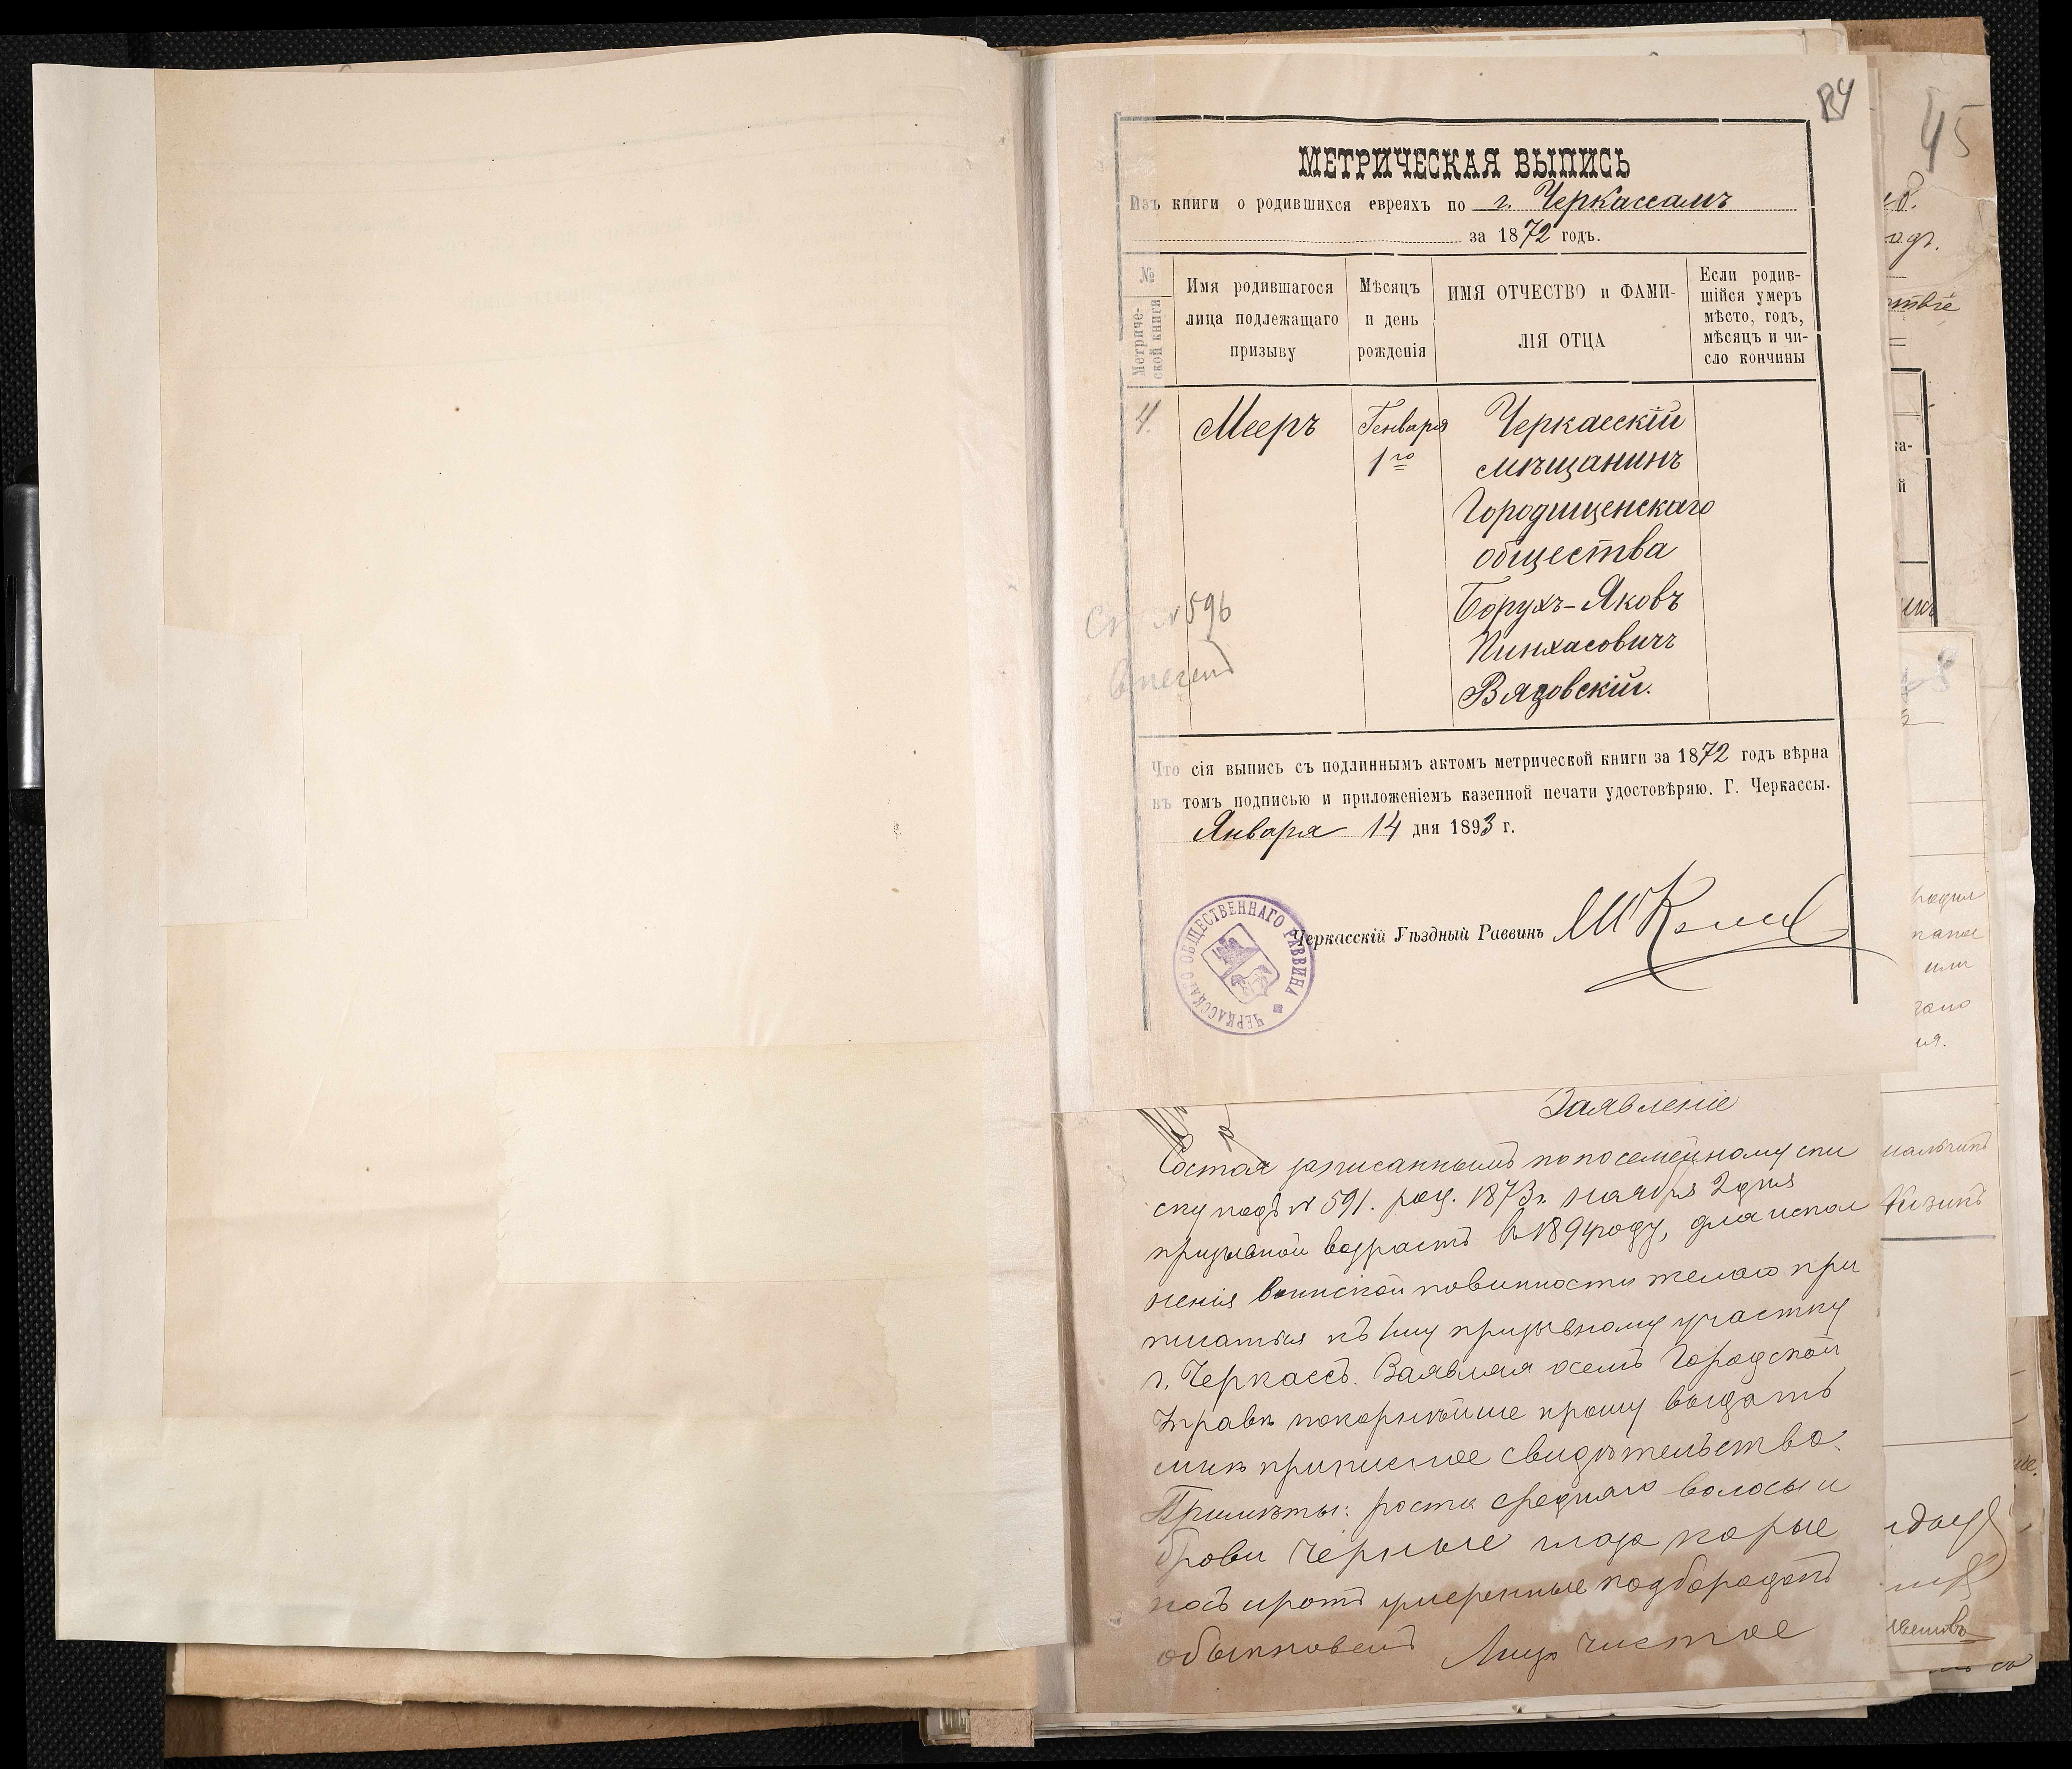 84
45
МЕТРИЧЕСКАЯ ВЫПИСЬ
Изъ книги о родившихся евреяхъ по г. Черкассамъ
за 1872 годъ.
№ Метриче-ской книги
Имя родившагося лица подлежащаго призыву
Мѣсяцъ и день рожденія
ИМЯ ОТЧЕСТВО и ФАМИ-ЛІЯ ОТЦА
Если родив-шійся умеръ мѣсто, годъ, мѣсяцъ и чи-сло кончины
4. Мееръ Генваря Черкасскій
1го мѣщанинъ
Городищенскаго
общества
№ 596 Борухъ-Яковъ
Пинхасовичъ
Вядовскій.
Что сія выпись съ подлиннымъ актомъ метрической книги за 1872 годъ вѣрна
въ томъ подписью и приложеніемъ казенной печати удостовѣряю. Г. Черкассы.
Января 14 дня 1893 г.
Черкасскій Уѣздный Раввинъ
ЧЕРКАССКАГО ОБЩЕСТВЕННАГО РАВВИНА
Заявленіе
Состоя записаннымъ по посемейному спи
ску подъ № 591. род. 1873 г. ноября 2 дня
призывной возрастъ въ 1894 году, для испол
ненія воинской повинности желаю при
писаться къ 1му призывному участку
г. Черкассъ. Заявляя о семъ Городской
Управѣ покорнѣйше прошу выдать
мнѣ приписное свидѣтельство.
Примѣты: роста средняго волосы и
брови черные глаза карые
носъ и ротъ умеренные подбородокъ
обыкновенъ Лицо чистое